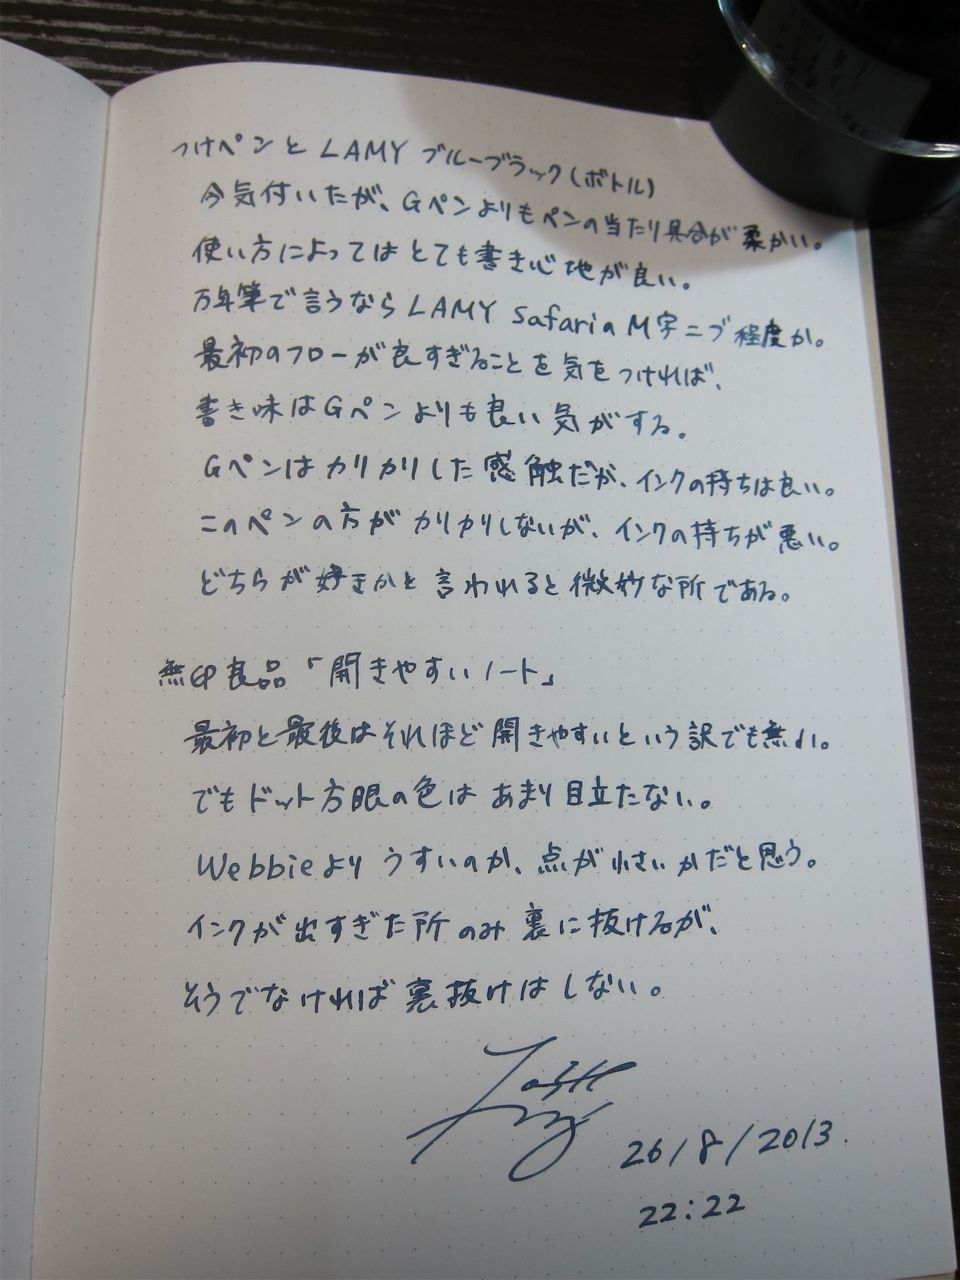 つけペンと LAMY ブルーブラック(ボトル)
今気付いたが、Gペンよりもペンの当たり具合が柔かい。
使い方によってはとても書き心地が良い。
万年筆で言うなら LAMY Safari の M字ニブ程度か。
最初のフローが良すぎることを気をつければ、
書き味はGペンよりも良い気がする。
Gペンはカリカリした感触だが、インクの持ちは良い。
このペンの方がカリカリしないが、インクの持ちが悪い。
どちらが好きかと言われると微妙な所である。
無印良品「開きやすいノート」
最初と最後はそれほど開きやすいという訳でも無い。
でもドット方眼の色はあまり目立たない。
Webbieよりうすいのか、点が小さいかだと思う。
インクが出すぎた所のみ裏に抜けるが、
そうでなければ裏抜けはしない。
26/8/2013.
22:22